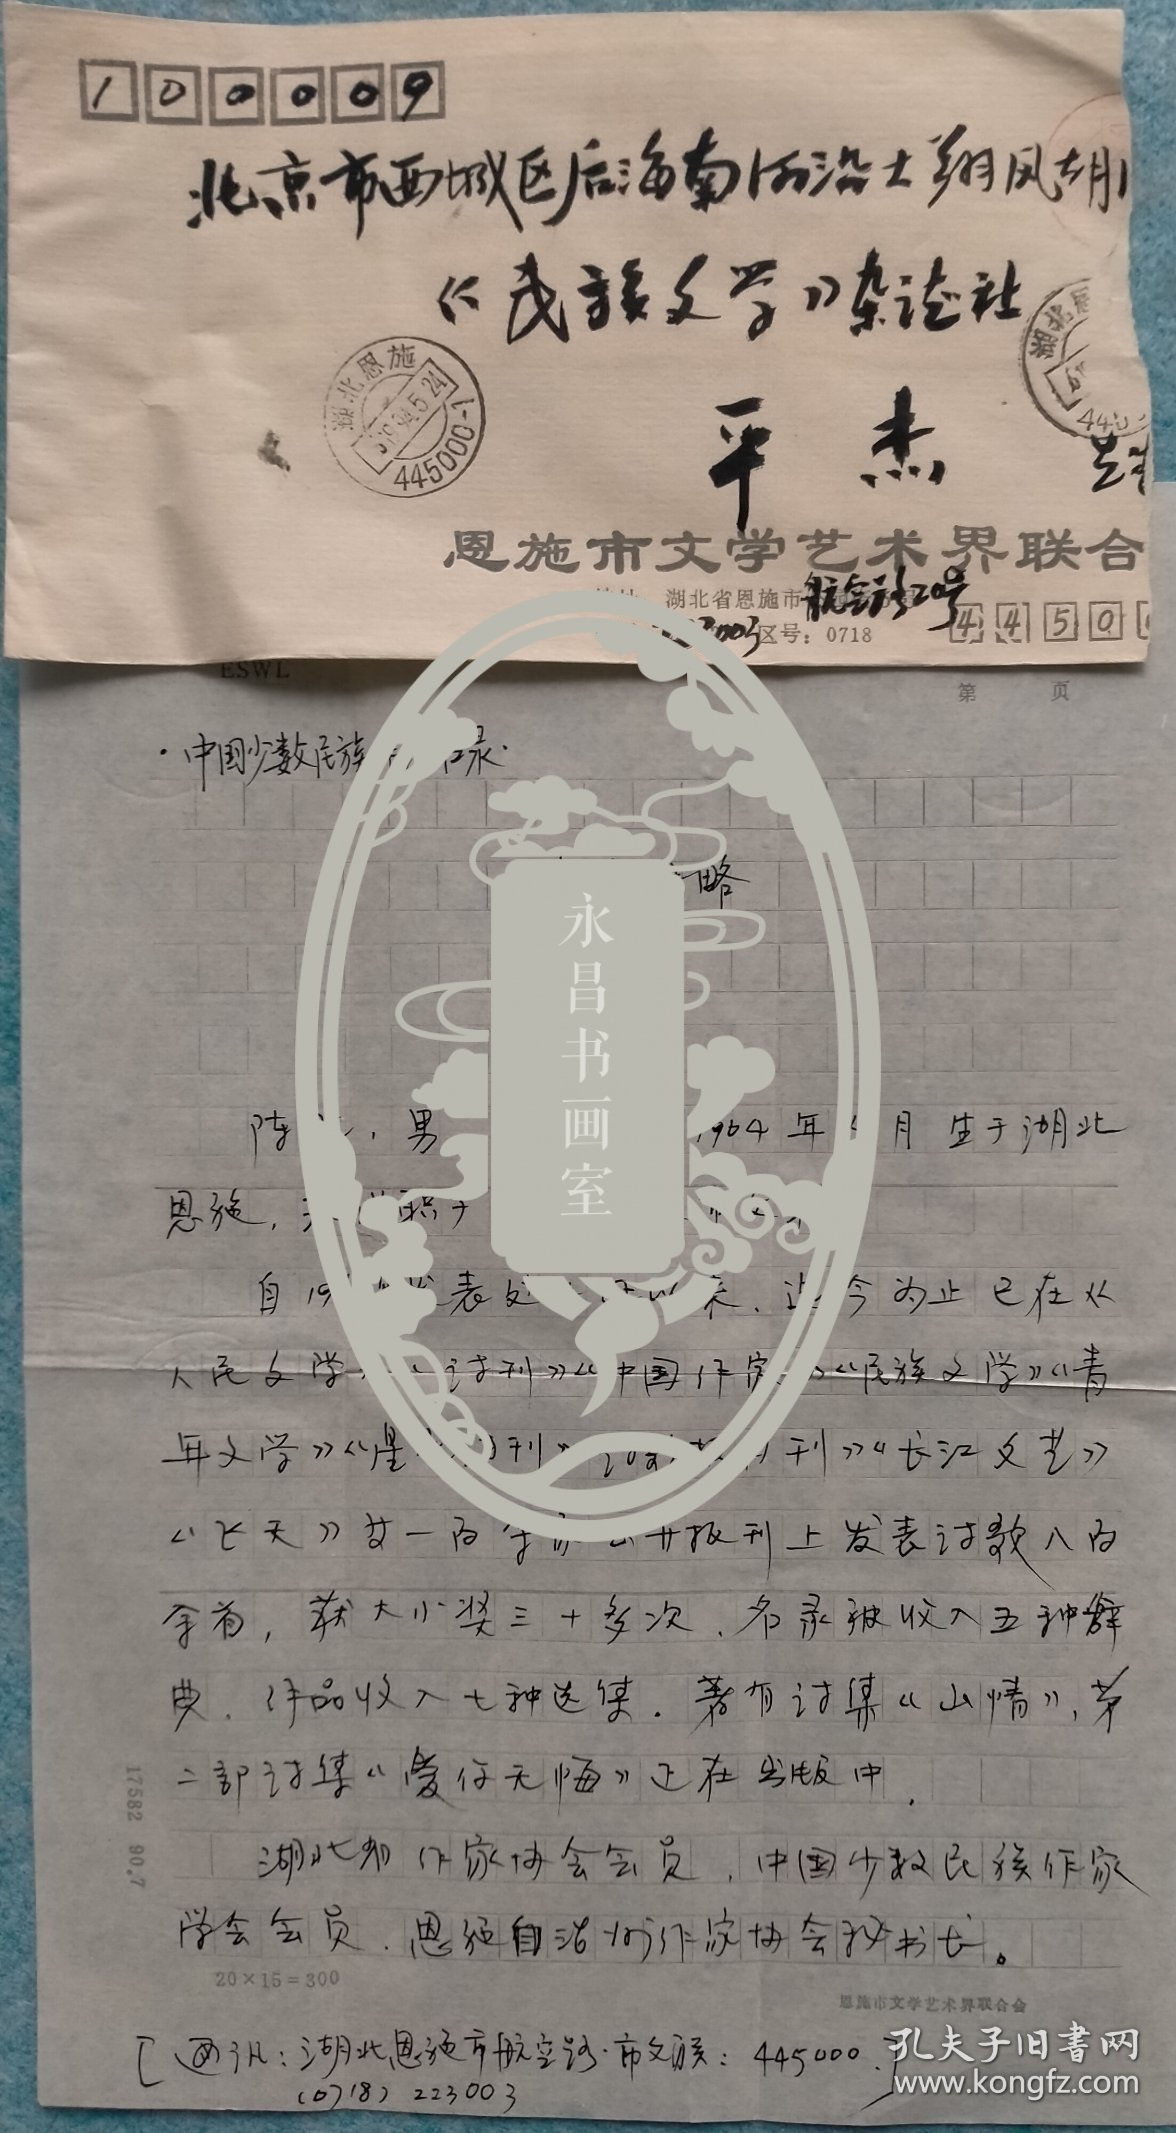 100009
北京市西城区后海南沿大翔凤胡
《民族文学》杂志社
湖北恩施
1994.5.24
445000-1
湖北恩
平 杰
恩施市文学艺术界联合
湖北省恩施市 航空路20号
区号：0718
4450
ESWL
第 页
·中国少数民族 录·
略
永昌书画室
陈 ，男 1964年 月生于湖北
恩施，
自19 发表处 以来，迄今为止已在《
人民文学》《诗刊》《中国作家》《民族文学》《青
年文学》《星 刊》 刊》《长江文艺》
《飞天》等一百余家公开报刊上发表诗歌八百
余首，获大小奖三十多次，名录被收入五种辞
典，作品收入七种选集。著有诗集《山情》，第
二部诗集《爱你无悔》正在出版中。
湖北省作家协会会员，中国少数民族作家
学会会员，恩施自治州作家协会秘书长。
17582 90.7
20×15=300
恩施市文学艺术界联合会
[通讯：湖北恩施市航空路·市文联：445000.]
(0718) 223003
孔夫子旧书网
www.kongfz.com